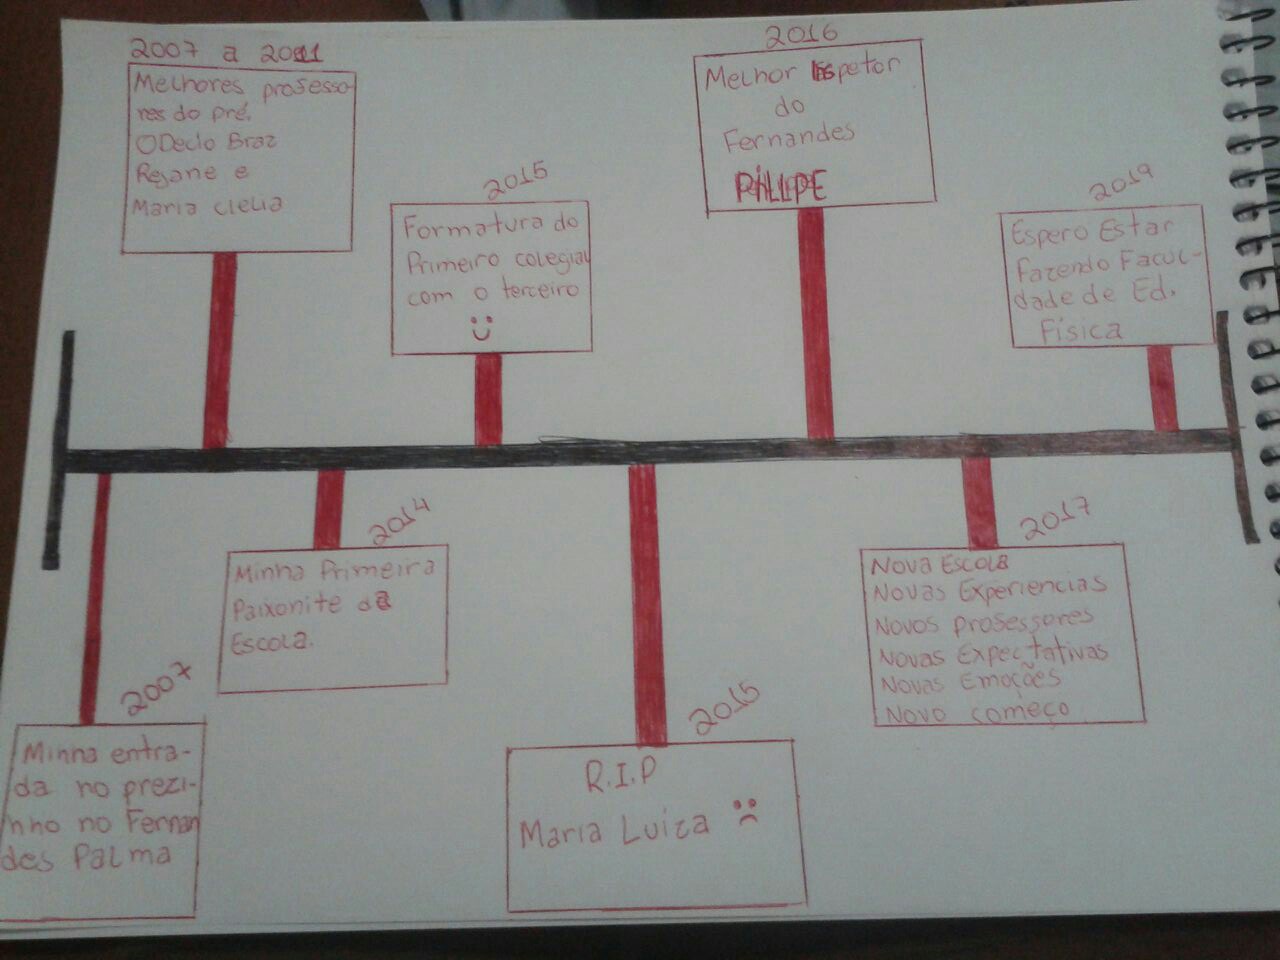 2007 a 2011
Melhores professo-
res do pré.
ODecio Braz
Rejane e
Maria clelia
2015
Formatura do
Primeiro colegial
com o terceiro
2016
Melhor Espetor
do
Fernandes
PILIPE
2019
Espero Estar
Fazendo Facul-
dade de Ed.
Física
2007
Minha entra-
da no prezi-
nho no Fernan
des Palma
2014
Minha Primeira
Paixonite da
Escola.
2015
R.I.P
Maria Luiza
2017
Nova Escola
Novas Experiencias
Novos professores
Novas Expectativas
Novas Emoções
Novo começo